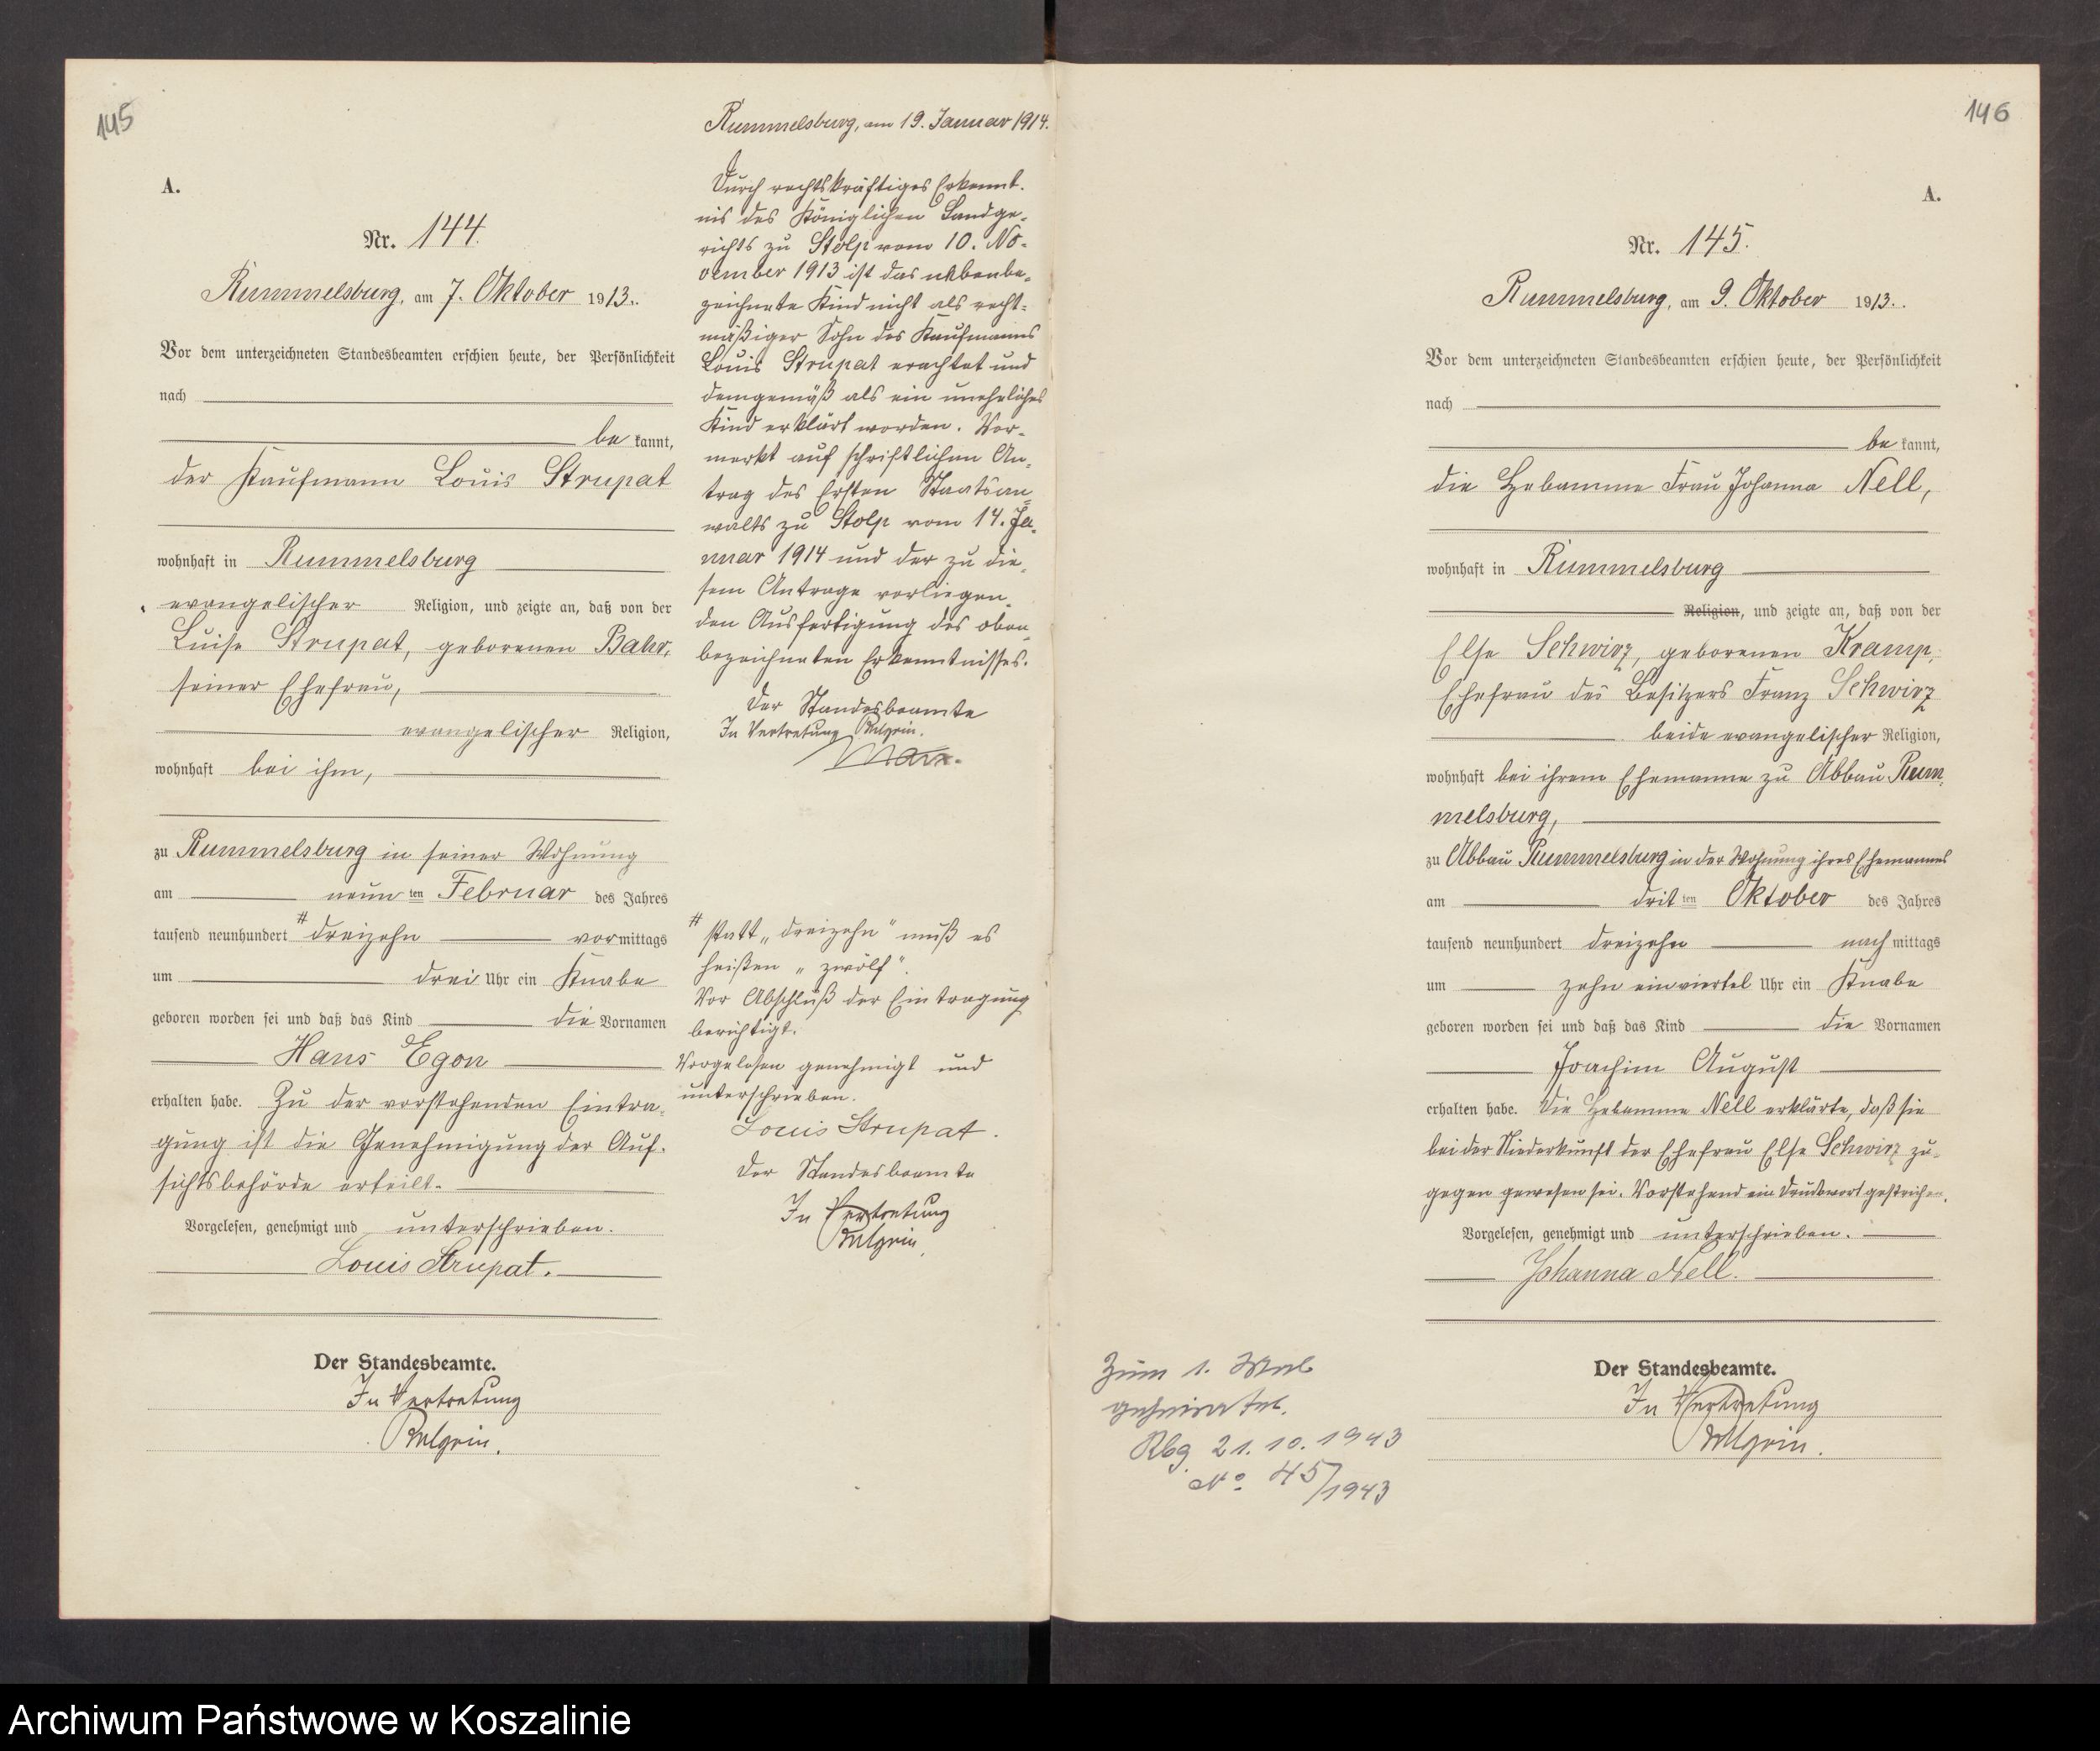 145
A.
Nr. 144.
Rummelsburg, am 7. Oktober 1913.
Vor dem unterzeichneten Standesbeamten erschien heute, der Persönlichkeit
nach
be kannt,
der Kaufmann Louis Strupat
wohnhaft in Rummelsburg
evangelischer Religion, und zeigte an, daß von der
Luise Strupat, geborenen Bahr,
seiner Ehefrau,
evangelischer Religion,
wohnhaft bei ihm,
zu Rummelsburg in seiner Wohnung
am neun ten Februar des Jahres
tausend neunhundert # dreizehn vormittags
um drei Uhr ein Knabe
geboren worden sei und daß das Kind die Vornamen
Hans Egon
erhalten habe. Zu der vorstehenden Eintra-
gung ist die Genehmigung der Auf-
sichtsbehörde erteilt.
Vorgelesen, genehmigt und unterschrieben.
Louis Strupat.
Der Standesbeamte.
In Vertretung
Rummelsburg, am 19. Januar 1914.
Durch rechtskräftiges Erkennt-
nis des Königlichen Landge-
richts zu Stolp vom 10. No-
vember 1913 ist das nebenbe-
zeichnete Kind nicht als recht-
mäßiger Sohn des Kaufmanns
Louis Strupat erachtet und
demgemäß als ein unehliches
Kind erklärt worden. Ver-
merkt auf schriftlichen An-
trag des Ersten Staatsan-
walts zu Stolp vom 14. Ja-
nuar 1914 und der zu die-
sem Antrage vorliegen-
den Ausfertigung des oben-
bezeichneten Erkenntnisses.
Der Standesbeamte
In Vertretung
# statt „dreizehn" muß es
heißen „zwölf".
Vor Abschluß der Eintragung
berichtigt.
Vorgelesen genehmigt und
unterschrieben.
Louis Strupat.
Der Standesbeamte
In Vertretung
146
A.
Nr. 145.
Rummelsburg, am 9. Oktober 1913.
Vor dem unterzeichneten Standesbeamten erschien heute, der Persönlichkeit
nach
be kannt,
die Hebamme Frau Johanna Nell,
wohnhaft in Rummelsburg
Religion, und zeigte an, daß von der
Else Schwirz, geborenen Kramp,
Ehefrau des Besitzers Franz Schwirz
beide evangelischer Religion,
wohnhaft bei ihrem Ehemanne zu Abbau Rum-
melsburg,
zu Abbau Rummelsburg in der Wohnung ihres Ehemannes
am drit ten Oktober des Jahres
tausend neunhundert dreizehn nach mittags
um zehn einviertel Uhr ein Knabe
geboren worden sei und daß das Kind die Vornamen
Joachim August
erhalten habe. Die Hebamme Nell erklärte, daß sie
bei der Niederkunft der Ehefrau Else Schwirz zu-
gegen gewesen sei. Vorstehend ein Druckwort gestrichen.
Vorgelesen, genehmigt und unterschrieben.
Johanna Nell.
Der Standesbeamte.
In Vertretung
Zum 1. Mal
geheiratet.
Rbg. 21.10.1943
No. 45/1943
Archiwum Państwowe w Koszalinie